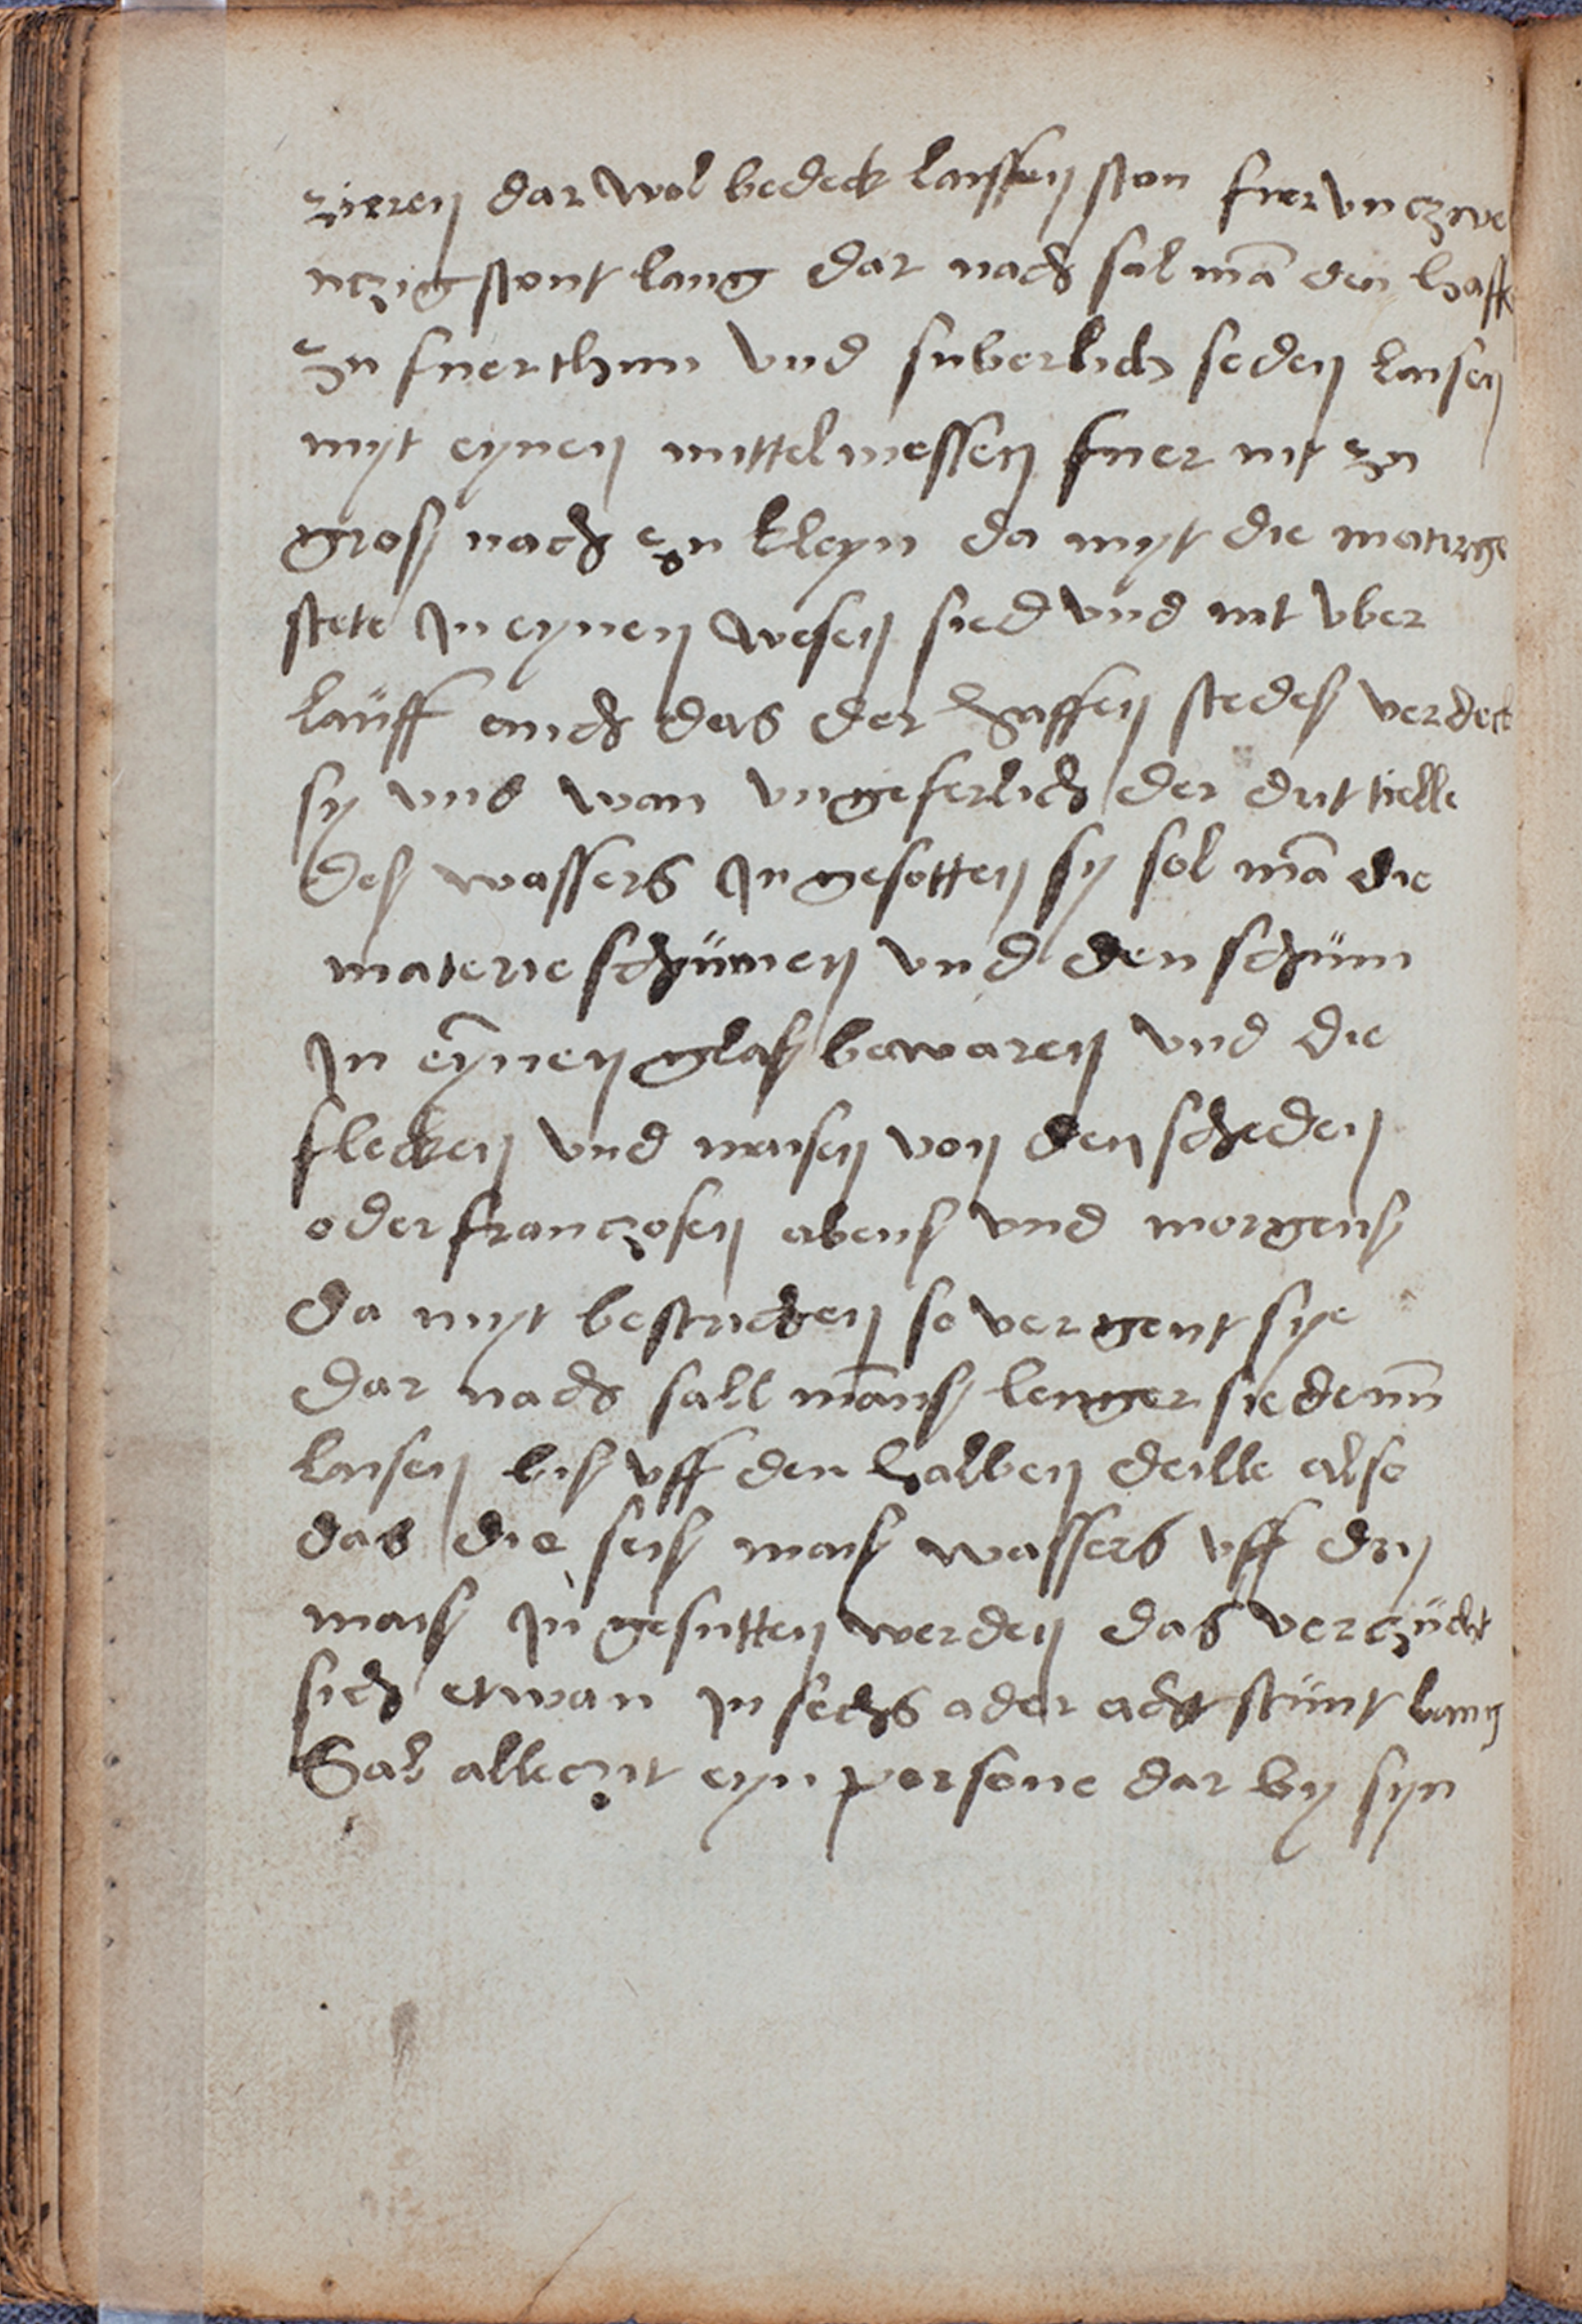 zieren dar wol bedeck laissen ston fier vn czwe
nczig stont lang dar nach sal mā den haff
zu fuer thun vnd suberlich seden laisen
myt eynen mittelmessen fuer nit zu
gros nach czu kleyn da myt die materge
stete In eynen wesen sied vnd nit vber
lauff auch das der haffen stedes verdeckt
sy vnd wan vngeferlich der drit tielle
des wassers In gesotten sy sol mā die
materie schumen vnd den schum
In eynen glas bewaren vnd die
flecken vnd maisen von den scheden
oder franczosen abens vnd morgens
da myt bestricken so vergent sye
dar nach sall māns lenger siedenn
laisen bis vff den halben deille also
das die seis mais wassers vff dry
mais In gesutten werden das verczückt
sich etwan In sechs oder acht stunt lang
Sal alleczit eyn persone dar by syn